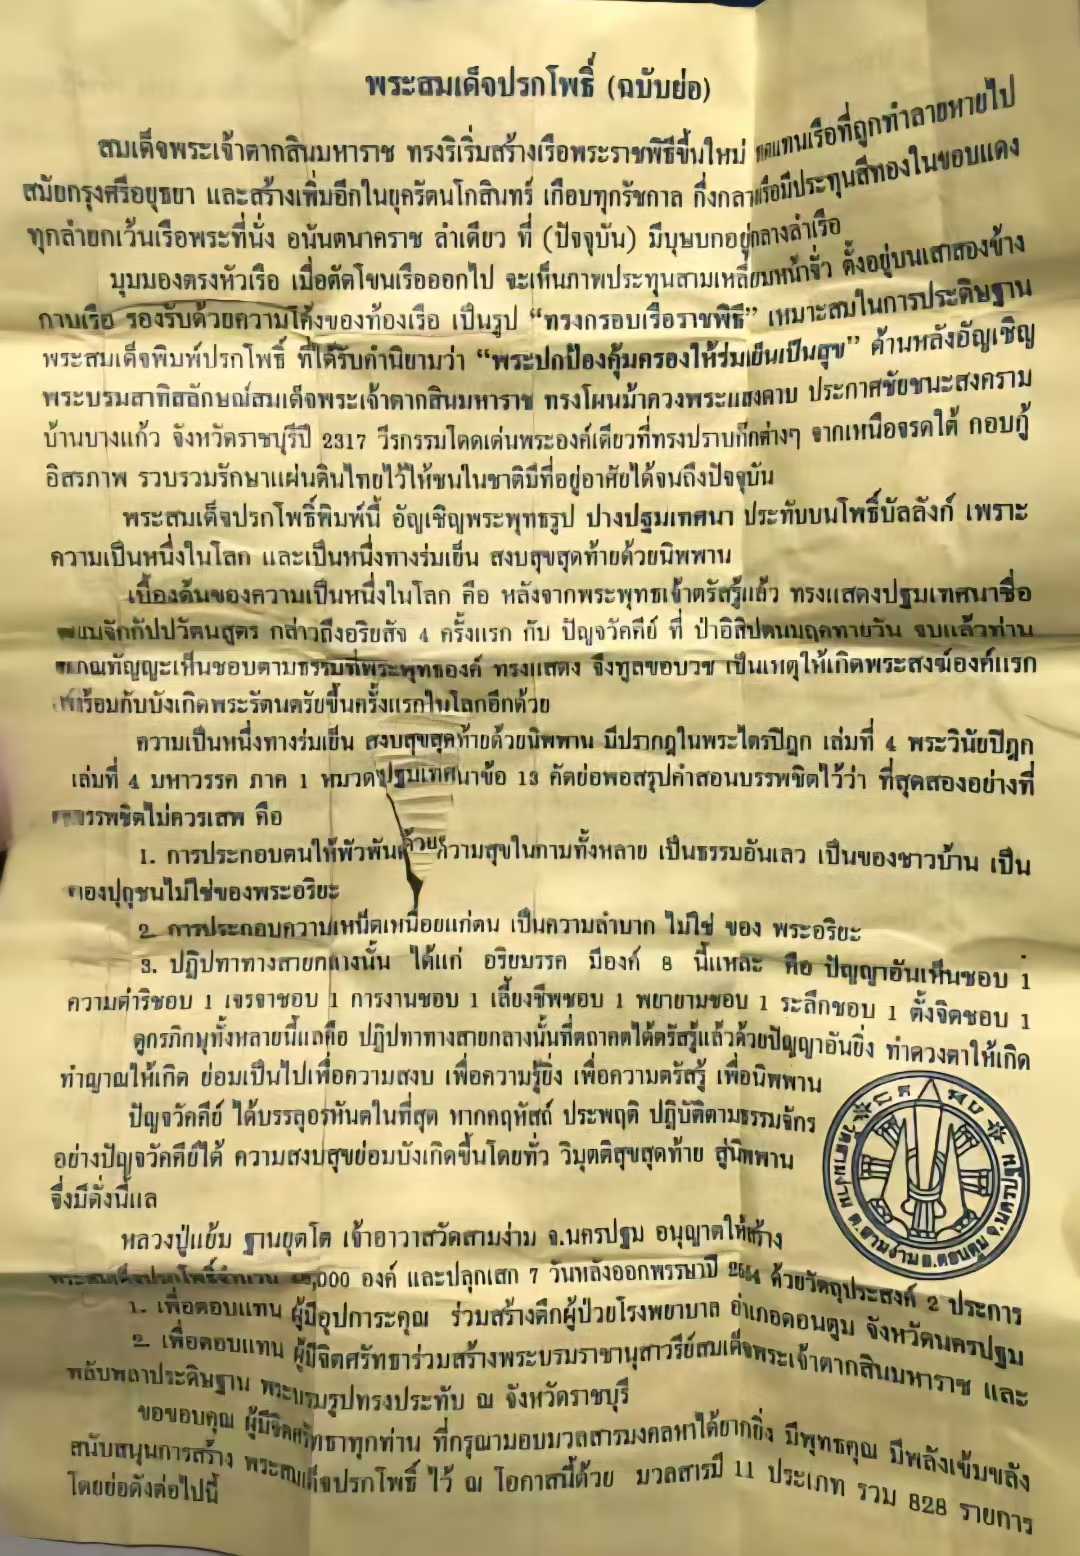 พระสมเด็จปรกโพธิ์ (ฉบับย่อ)
สมเด็จพระเจ้าตากสินมหาราช ทรงริเริ่มสร้างเรือพระราชพิธีขึ้นใหม่ ทดแทนเรือที่ถูกทำลายหายไป
สมัยกรุงศรีอยุธยา และสร้างเพิ่มอีกในยุครัตนโกสินทร์ เกือบทุกรัชกาล กึ่งกลางเรือมีประทุนสีทองในขอบแดง
ทุกลำยกเว้นเรือพระที่นั่ง อนันตนาคราช ลำเดียว ที่ (ปัจจุบัน) มีบุษบกอยู่กลางลำเรือ
มุมมองตรงหัวเรือ เมื่อตัดโขนเรือออกไป จะเห็นภาพประทุนสามเหลี่ยมหน้าจั่ว ตั้งอยู่บนเสาสองข้าง
กาบเรือ รองรับด้วยความโค้งของท้องเรือ เป็นรูป “ทรงกรอบเรือราชพิธี” เหมาะสมในการประดิษฐาน
พระสมเด็จพิมพ์ปรกโพธิ์ ที่ได้รับคำนิยามว่า “พระปกป้องคุ้มครองให้ร่มเย็นเป็นสุข” ด้านหลังอัญเชิญ
พระบรมสาทิสลักษณ์สมเด็จพระเจ้าตากสินมหาราช ทรงโผนม้าควงพระแสงดาบ ประกาศชัยชนะสงคราม
บ้านบางแก้ว จังหวัดราชบุรีปี 2317 วีรกรรมโดดเด่นพระองค์เดียวที่ทรงปราบก๊กต่างๆ จากเหนือจรดใต้ กอบกู้
อิสรภาพ รวบรวมรักษาแผ่นดินไทยไว้ให้ชนในชาติมีที่อยู่อาศัยได้จนถึงปัจจุบัน
พระสมเด็จปรกโพธิ์พิมพ์นี้ อัญเชิญพระพุทธรูป ปางปฐมเทศนา ประทับบนโพธิ์บัลลังก์ เพราะ
ความเป็นหนึ่งในโลก และเป็นหนึ่งทางร่มเย็น สงบสุขสุดท้ายด้วยนิพพาน
เบื้องต้นของความเป็นหนึ่งในโลก คือ หลังจากพระพุทธเจ้าตรัสรู้แล้ว ทรงแสดงปฐมเทศนาชื่อ
ธรรมจักกัปปวัตนสูตร กล่าวถึงอริยสัจ 4 ครั้งแรก กับ ปัญจวัคคีย์ ที่ ป่าอิสิปตนมฤคทายวัน จบแล้วท่าน
โกณฑัญญะเห็นชอบตามธรรมที่พระพุทธองค์ ทรงแสดง จึงทูลขอบวช เป็นเหตุให้เกิดพระสงฆ์องค์แรก
พร้อมกับบังเกิดพระรัตนตรัยขึ้นครั้งแรกในโลกอีกด้วย
ความเป็นหนึ่งทางร่มเย็น สงบสุขสุดท้ายด้วยนิพพาน มีปรากฏในพระไตรปิฎก เล่มที่ 4 พระวินัยปิฎก
เล่มที่ 4 มหาวรรค ภาค 1 หมวดปฐมเทศนาข้อ 13 คัดย่อพอสรุปคำสอนบรรพชิตไว้ว่า ที่สุดสองอย่างที่
บรรพชิตไม่ควรเสพ คือ
1. การประกอบตนให้พัวพันด้วยความสุขในกามทั้งหลาย เป็นธรรมอันเลว เป็นของชาวบ้าน เป็น
ของปุถุชนไม่ใช่ของพระอริยะ
2. การประกอบความเหน็ดเหนื่อยแก่ตน เป็นความลำบาก ไม่ใช่ ของ พระอริยะ
3. ปฏิปทาทางสายกลางนั้น ได้แก่ อริยมรรค มีองค์ 8 นี้แหละ คือ ปัญญาอันเห็นชอบ 1
ความดำริชอบ 1 เจรจาชอบ 1 การงานชอบ 1 เลี้ยงชีพชอบ 1 พยายามชอบ 1 ระลึกชอบ 1 ตั้งจิตชอบ 1
ดูกรภิกษุทั้งหลายนี้แลคือ ปฏิปทาทางสายกลางนั้นที่ตถาคตได้ตรัสรู้แล้วด้วยปัญญาอันยิ่ง ทำดวงตาให้เกิด
ทำญาณให้เกิด ย่อมเป็นไปเพื่อความสงบ เพื่อความรู้ยิ่ง เพื่อความตรัสรู้ เพื่อนิพพาน
ปัญจวัคคีย์ ได้บรรลุอรหันตในที่สุด หากคฤหัสถ์ ประพฤติ ปฏิบัติตามธรรมจักร
อย่างปัญจวัคคีย์ได้ ความสงบสุขย่อมบังเกิดขึ้นโดยทั่ว วิมุตติสุขสุดท้าย สู่นิพพาน
จึ่งมีดั่งนี้แล
วัดสามง่าม ต.สามง่าม อ.ดอนตูม จ.นครปฐม
หลวงปู่แย้ม ฐานยุตโต เจ้าอาวาสวัดสามง่าม จ.นครปฐม อนุญาตให้สร้าง
พระสมเด็จปรกโพธิ์จำนวน ,000 องค์ และปลุกเสก 7 วันหลังออกพรรษาปี ด้วยวัตถุประสงค์ 2 ประการ
1. เพื่อตอบแทน ผู้มีอุปการะคุณ ร่วมสร้างตึกผู้ป่วยโรงพยาบาล อำเภอดอนตูม จังหวัดนครปฐม
2. เพื่อตอบแทน ผู้มีจิตศรัทธาร่วมสร้างพระบรมราชานุสาวรีย์สมเด็จพระเจ้าตากสินมหาราช และ
พลับพลาประดิษฐาน พระบรมรูปทรงประทับ ณ จังหวัดราชบุรี
ขอขอบคุณ ผู้มีจิตศรัทธาทุกท่าน ที่กรุณามอบมวลสารมงคลหาได้ยากยิ่ง มีพุทธคุณ มีพลังเข้มขลัง
สนับสนุนการสร้าง พระสมเด็จปรกโพธิ์ ไว้ ณ โอกาสนี้ด้วย มวลสารมี 11 ประเภท รวม 828 รายการ
โดยย่อดังต่อไปนี้